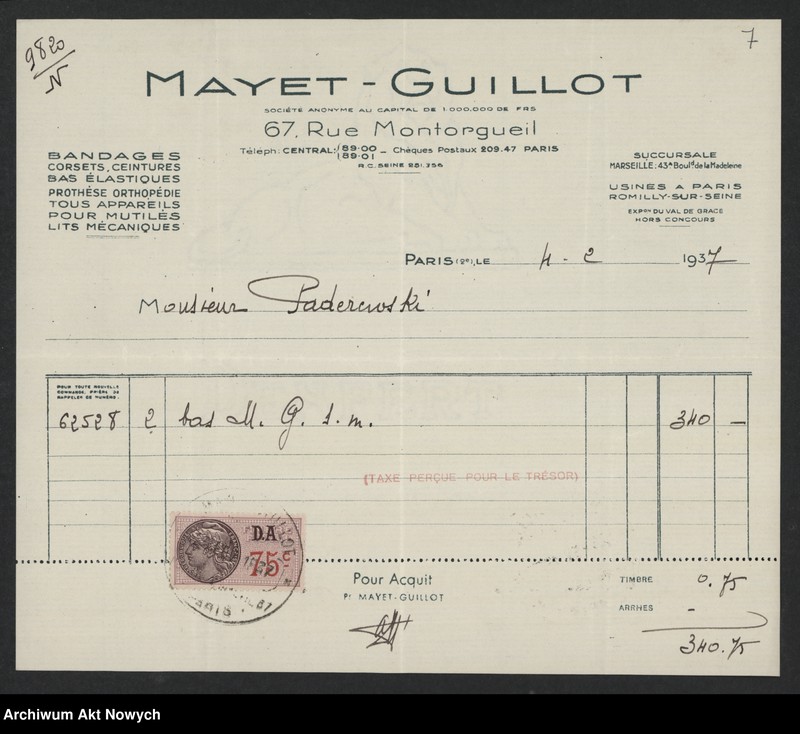 9820
N
7
MAYET-GUILLOT
SOCIÉTÉ ANONYME AU CAPITAL DE 1.000.000 DE FRS
67, Rue Montorgueil
Téléph: CENTRAL: 89-00 89-01 — Chèques Postaux 209.47 PARIS
R.C. SEINE 251.356
BANDAGES
CORSETS, CEINTURES
BAS ÉLASTIQUES
PROTHÈSE ORTHOPÉDIE
TOUS APPAREILS
POUR MUTILÉS
LITS MÉCANIQUES
SUCCURSALE
MARSEILLE: 43A Bould de la Madeleine
USINES A PARIS
ROMILLY-SUR-SEINE
EXPon DU VAL DE GRACE
HORS CONCOURS
PARIS (2e), LE 4-2 1937
Monsieur Paderewski
POUR TOUTE NOUVELLE
COMMANDE, PRIÈRE DE
RAPPELER CE NUMÉRO.
62528 2 bas M. G. s. m. 340 —
(TAXE PERÇUE POUR LE TRÉSOR)
D.A
75c
PARIS
Pour Acquit
Pr MAYET-GUILLOT
TIMBRE 0.75
ARRHES -
340.75
Archiwum Akt Nowych